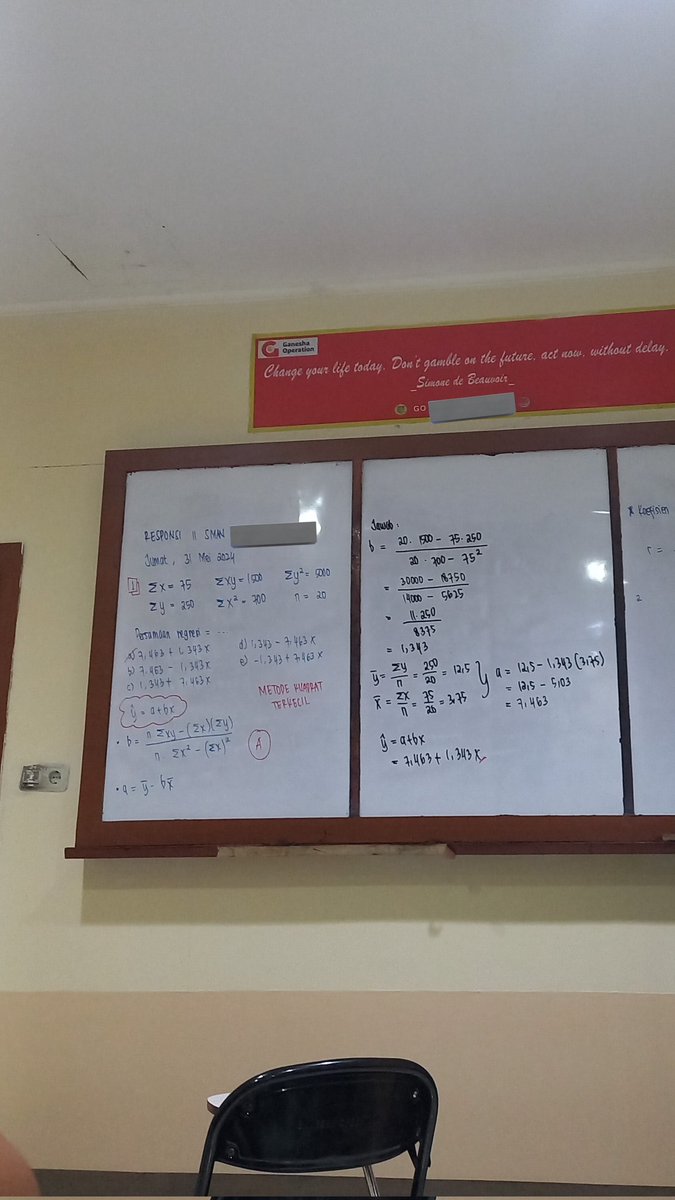 Ganesha
Operation
Change your life today. Don't gamble on the future, act now, without delay.
_Simone de Beauvoir_
GO
RESPONSI II SMAN
Jumat, 31 Mei 2024
1 Σx = 75 Σxy = 1500 Σy² = 5000
Σy = 250 Σx² = 700 n = 20
Persamaan regresi = ...
a) 7,463 + 1,343x
b) 7,463 - 1,343x
c) 1,343 + 7,463x
d) 1,343 - 7,463x
e) -1,343 + 7,463x
METODE KUADRAT
TERKECIL
ŷ = a+bx
• b = n Σxy - (Σx)(Σy) / n. Σx² - (Σx)²
A
• a = ȳ - bx̄
Jawab:
b = 20. 1500 - 75.250 / 20. 700 - 75²
= 30000 - 18750 / 14000 - 5625
= 11.250 / 8375
= 1,343
ȳ = Σy/n = 250/20 = 12,5
x̄ = Σx/n = 75/20 = 3,75
a = 12,5 - 1,343 (3,75)
= 12,5 - 5,03
= 7,463
ŷ = a+bx
= 7,463 + 1,343x
* Koefisien
r =
2